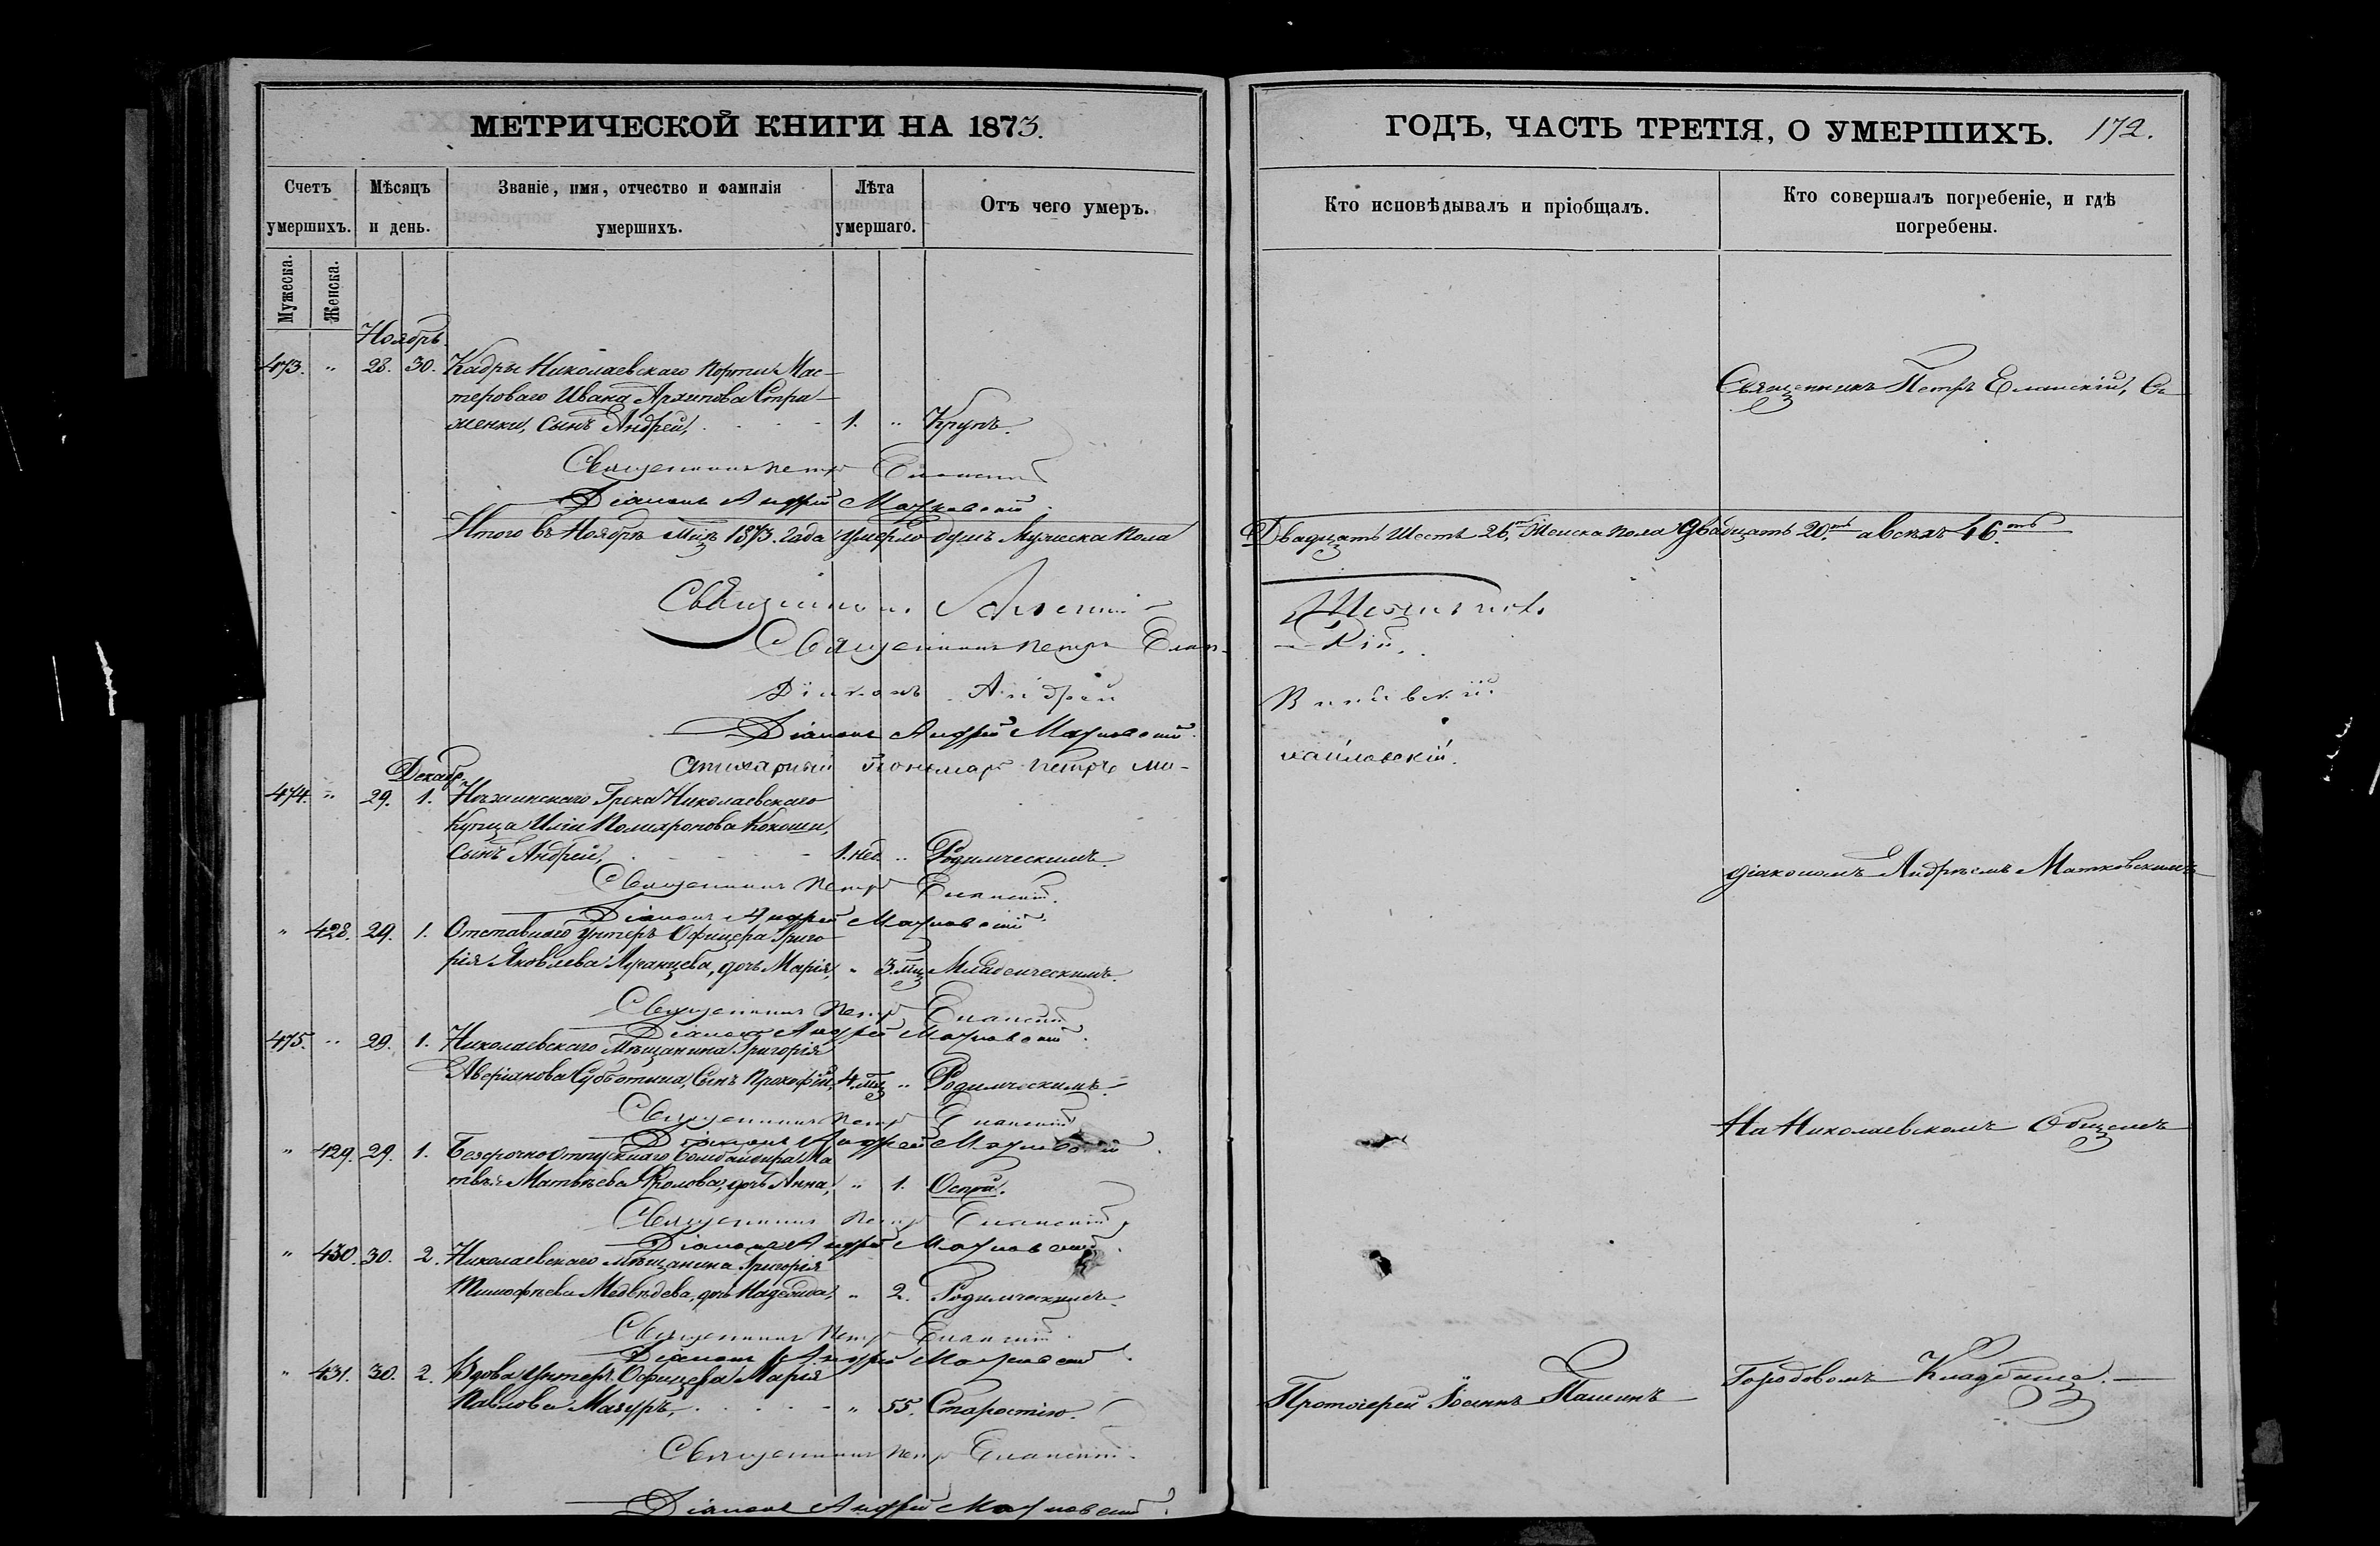 МЕТРИЧЕСКОЙ КНИГИ НА 1873.
Счетъ умершихъ.
Мѣсяцъ и день.
Званіе, имя, отчество и фамилія умершихъ.
Лѣта умершаго.
Отъ чего умеръ.
Мужеска.
Женска.
Ноябрь
473. " 28. 30. Кадры Николаевскаго Порта Мас-
тероваго Ивана Архипова
сынъ Андрей, 1. " Крупъ.
Священникъ Петръ Еланскій
Діаконъ Андрей Матковскій.
Итого въ Ноябрѣ мцѣ 1873. года умерло душъ Мужеска пола
Священникъ
Священникъ Петръ Елан-
Діаконъ Андрей
Діаконъ Андрей Матковскій.
Стихарный Пономарь Петръ Ми-
Декабр.
474. " 29. 1. Нѣжинскаго Грека Николаевскаго
Купца Иліи
сынъ Андрей, 1. нед. " Родимческимъ.
Священникъ Петръ Еланскій.
Діаконъ Андрей Матковскій
" 428. 29. 1. Отставнаго Унтеръ Офицера Григо-
рія Яковлева дочь Марія, " 3. мц. Младенческимъ.
Священникъ Петръ Еланскій
Діаконъ Андрей Матковскій.
475. " 29. 1. Николаевскаго Мѣщанина Григорія
Аверіанова Субботина, сынъ Прокофій, 4. мц. " Родимческимъ.
Священникъ Петръ Еланскій
Діаконъ Андрей Матковскій.
" 429. 29. 1. Безсрочноотпускнаго Бомбандира Ма
твѣя Матвѣева Фролова, дочь Анна, " 1. Оспой.
Священникъ Петръ Еланскій
Діаконъ Андрей Матковскій.
" 430. 30. 2. Николаевскаго Мѣщанина Григорія
Тимофѣева Медвѣдева, дочь Надежда, " 2. Родимческимъ.
Священникъ Петръ Еланскій
Діаконъ Андрей Матковскій.
" 431. 30. 2. Вдова Унтеръ Офицера Марія
Павлова Мазуръ, " 55. Старостію.
Священникъ Петръ Еланскій.
Діаконъ Андрей Матковскій.
ГОДЪ, ЧАСТЬ ТРЕТІЯ, О УМЕРШИХЪ. 172.
Кто исповѣдывалъ и пріобщалъ.
Кто совершалъ погребеніе, и гдѣ погребены.
Священникъ Петръ Еланскій, Съ
Двадцать Шесть 26, Женска пола двадцать 20. а всѣхъ 46.
-скій.
хайловскій.
Діакономъ Андреемъ Матковскимъ
На Николаевскомъ Общемъ
Городовомъ Кладбище.
Протоіерей Іоаннъ Пашинъ